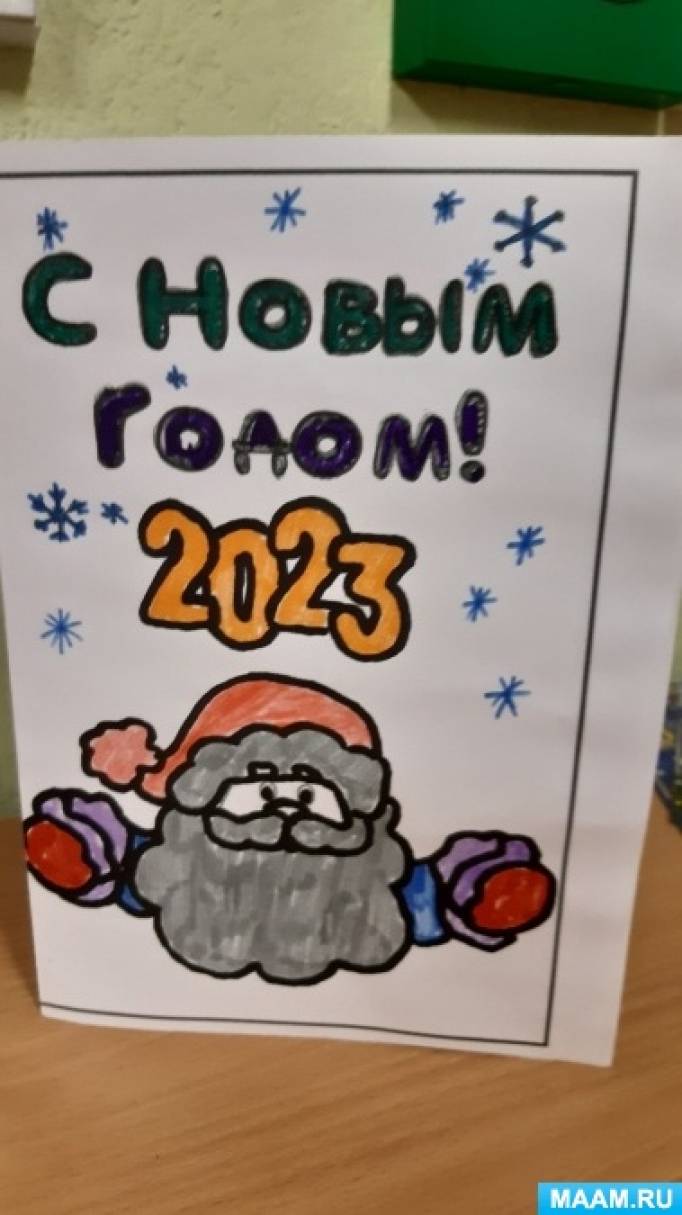 С НОВЫМ
ГОДОМ!
2023
MAAM.RU